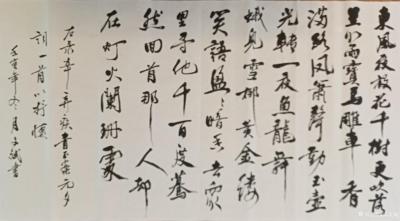 東風夜放花千樹更吹落
星如雨寶馬雕車香
滿路鳳簫聲動玉壺
光轉一夜魚龍舞
蛾兒雪柳黃金縷
笑語盈〻暗香去眾
里尋他千百度驀
然回首那人却
在灯火闌珊處
右录辛弃疾青玉案元夕
詞一首以抒懷
壬寅年冬月書